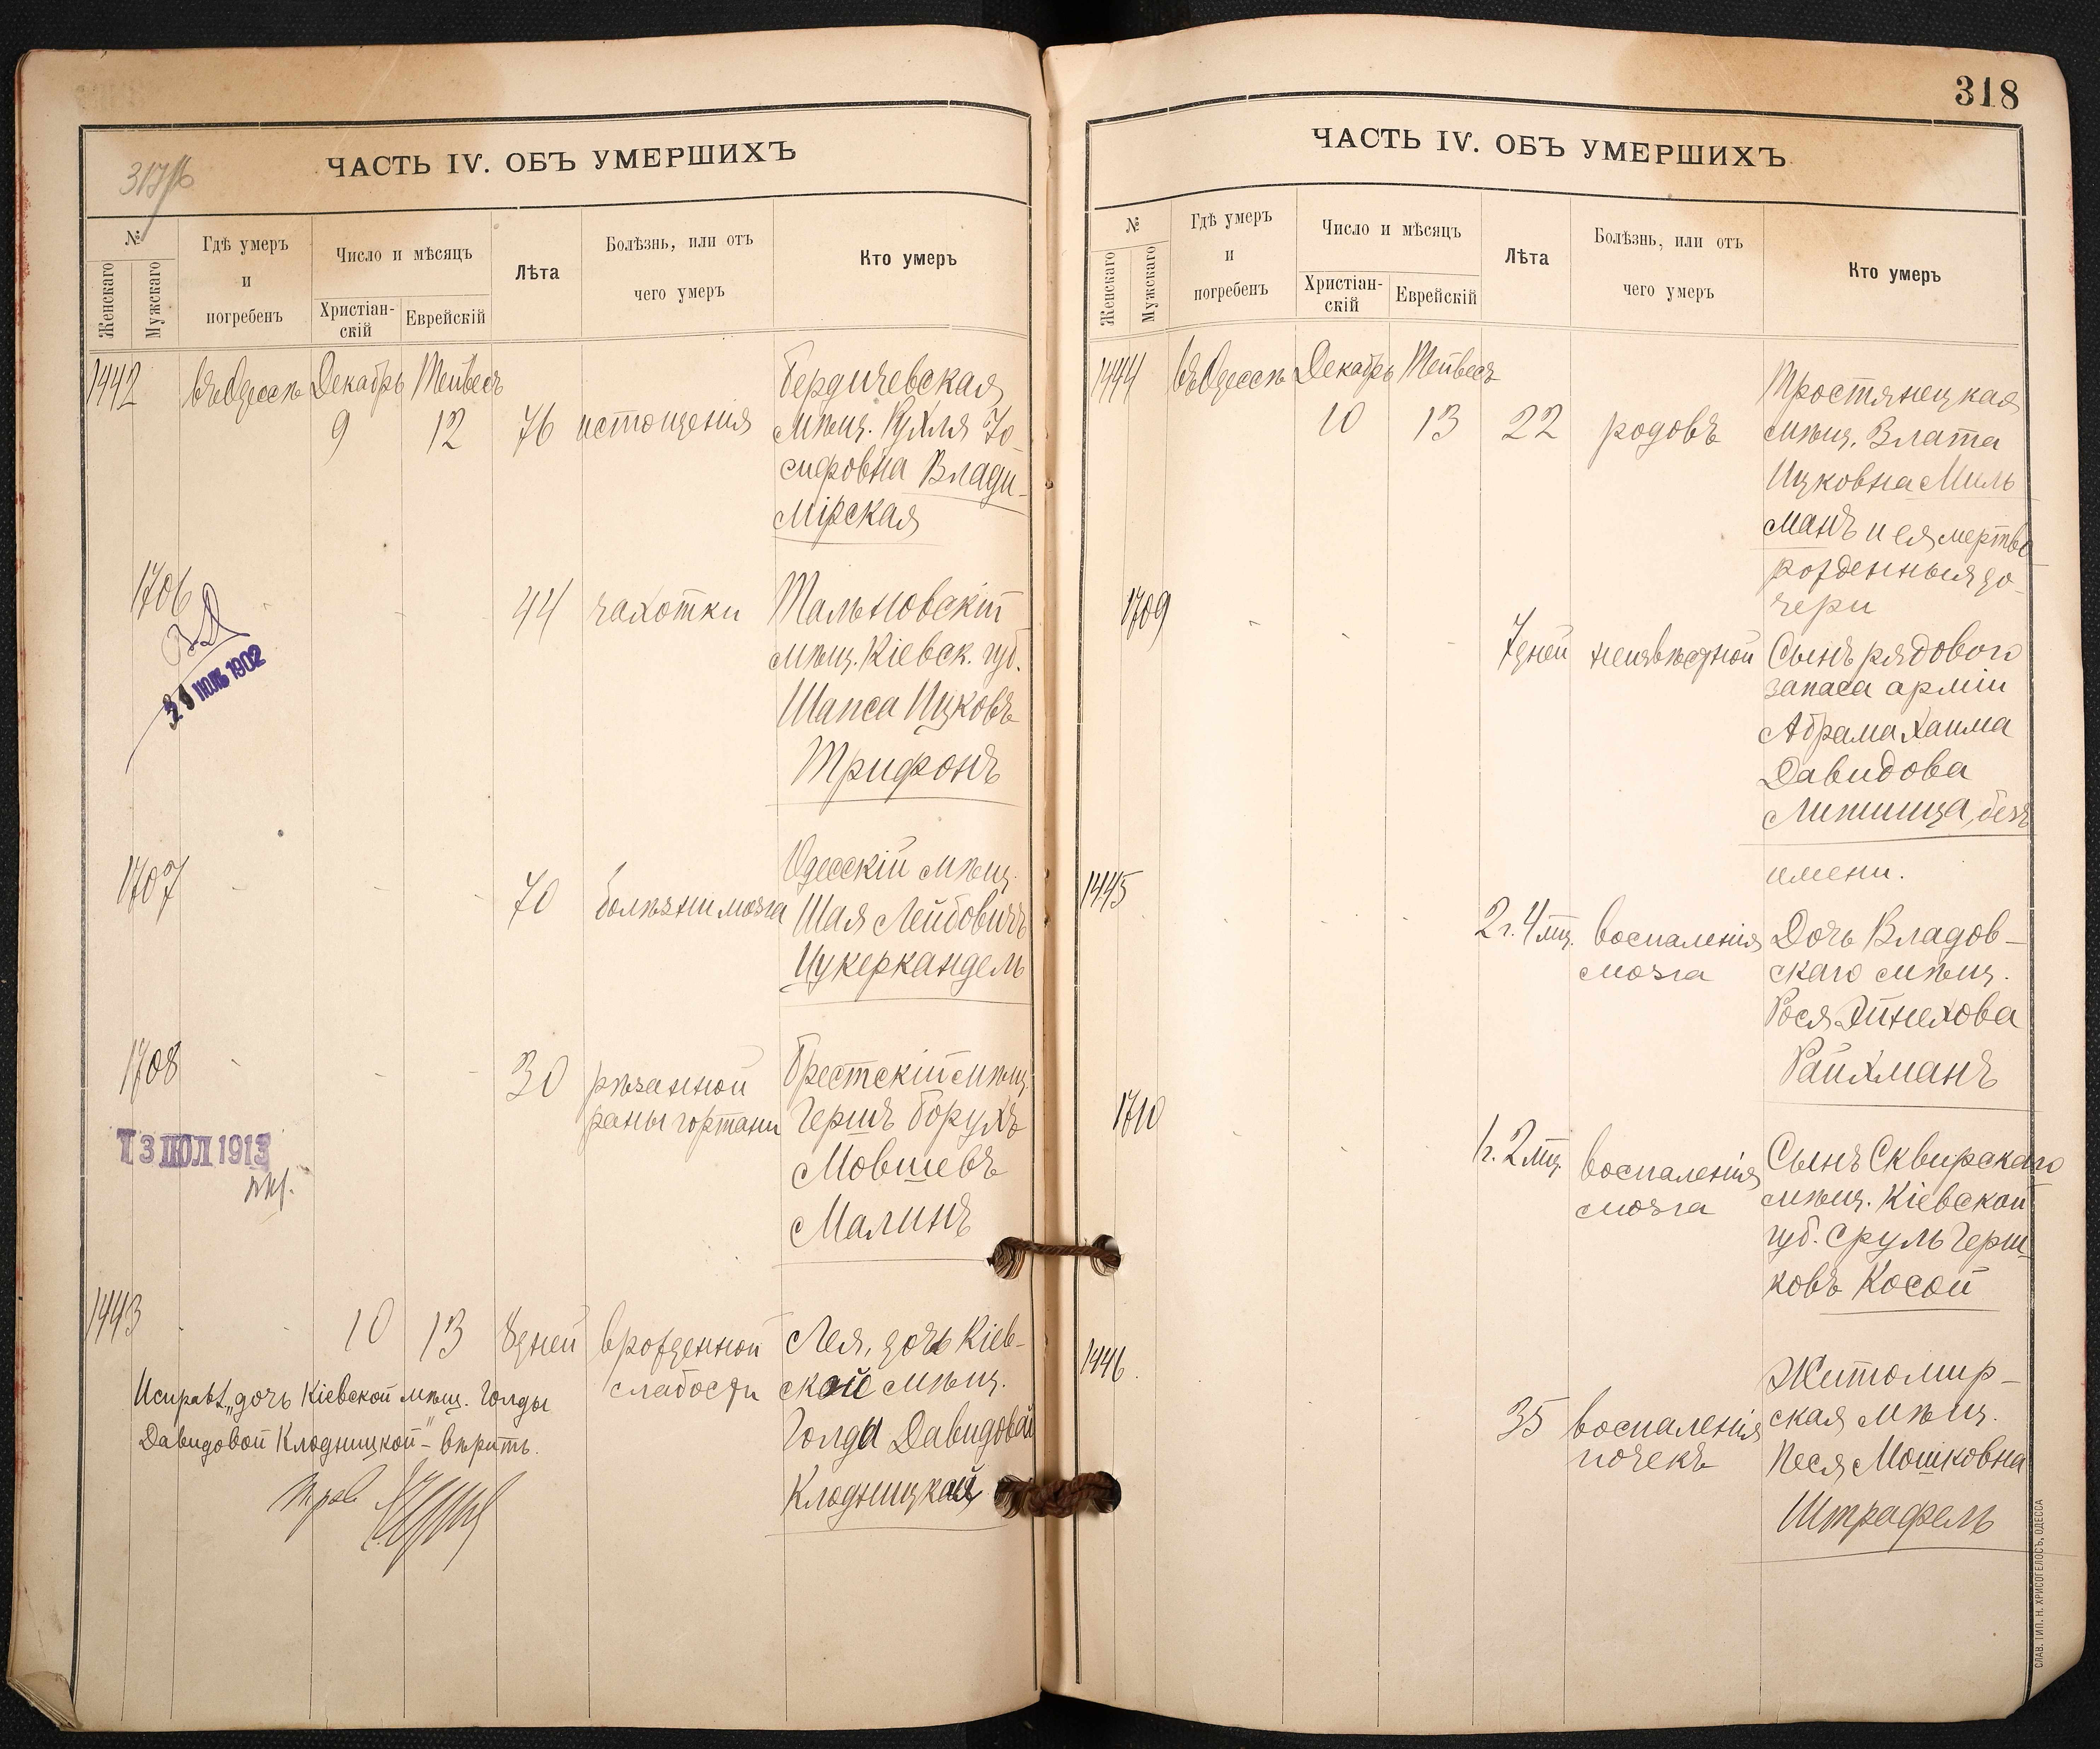 317об
ЧАСТЬ IV. ОБЪ УМЕРШИХЪ
№
Женскаго
Мужскаго
Гдѣ умеръ
и
погребенъ
Число и мѣсяцъ
Христіан-
скій
Еврейскій
Лѣта
Болѣзнь, или отъ
чего умеръ
Кто умеръ
1442 въ Одессѣ Декабрь Тейвесъ Бердичевская
9 12 76 истощенія мѣщ. Рухля Іо-
сифовна Влади-
мірская
1706 44 чахотки Тальновскій
мѣщ. Кіевск. губ.
Шапса Ицковъ
Трифонъ
31 ІЮЛЬ 1902
1707 70 болѣзни мозга Одесскій мѣщ.
Шая Лейбовичъ
Цукеркандель
1708 30 рѣзанной Брестскій мѣщ.
раны гортани Гершъ Борухъ
Мовшевъ
Малинъ
13 ІЮЛ 1913
1443 10 13 8 дней врожденной Лея, дочь Кіев-
слабости ской мѣщ.
Голды Давидовой
Клодницкой
Исправл. „дочь Кіевской мѣщ. Голды
Давидовой Клодницкой" – вѣрить.
318
ЧАСТЬ IV. ОБЪ УМЕРШИХЪ
№
Женскаго
Мужскаго
Гдѣ умеръ
и
погребенъ
Число и мѣсяцъ
Христіан-
скій
Еврейскій
Лѣта
Болѣзнь, или отъ
чего умеръ
Кто умеръ
1444 въ Одессѣ Декабрь Тейвесъ Тростянецкая
10 13 22 родовъ мѣщ. Злата
Ицковна Миль
манъ и ея мертво
рожденныя до-
чери
1709 7 дней неизвѣстной Сынъ рядового
запаса арміи
Абрама Хаима
Давидова
Липшица, безъ
имени.
1445 2 г. 4 мц. воспаленія Дочь Владов-
мозга скаго мѣщ.
Рося Эйнехова
Райхманъ
1710 1 г. 2 мц. воспаленія Сынъ Сквирскаго
мозга мѣщ. Кіевской
губ. Сруль Герш-
ковъ Косой
1446. Житомир-
35 воспаленія ская мѣщ.
почекъ Песя Мошковна
Штрафель
СЛАВ. ТИП. Н. ХРИСОГЕЛОСЪ, ОДЕССА